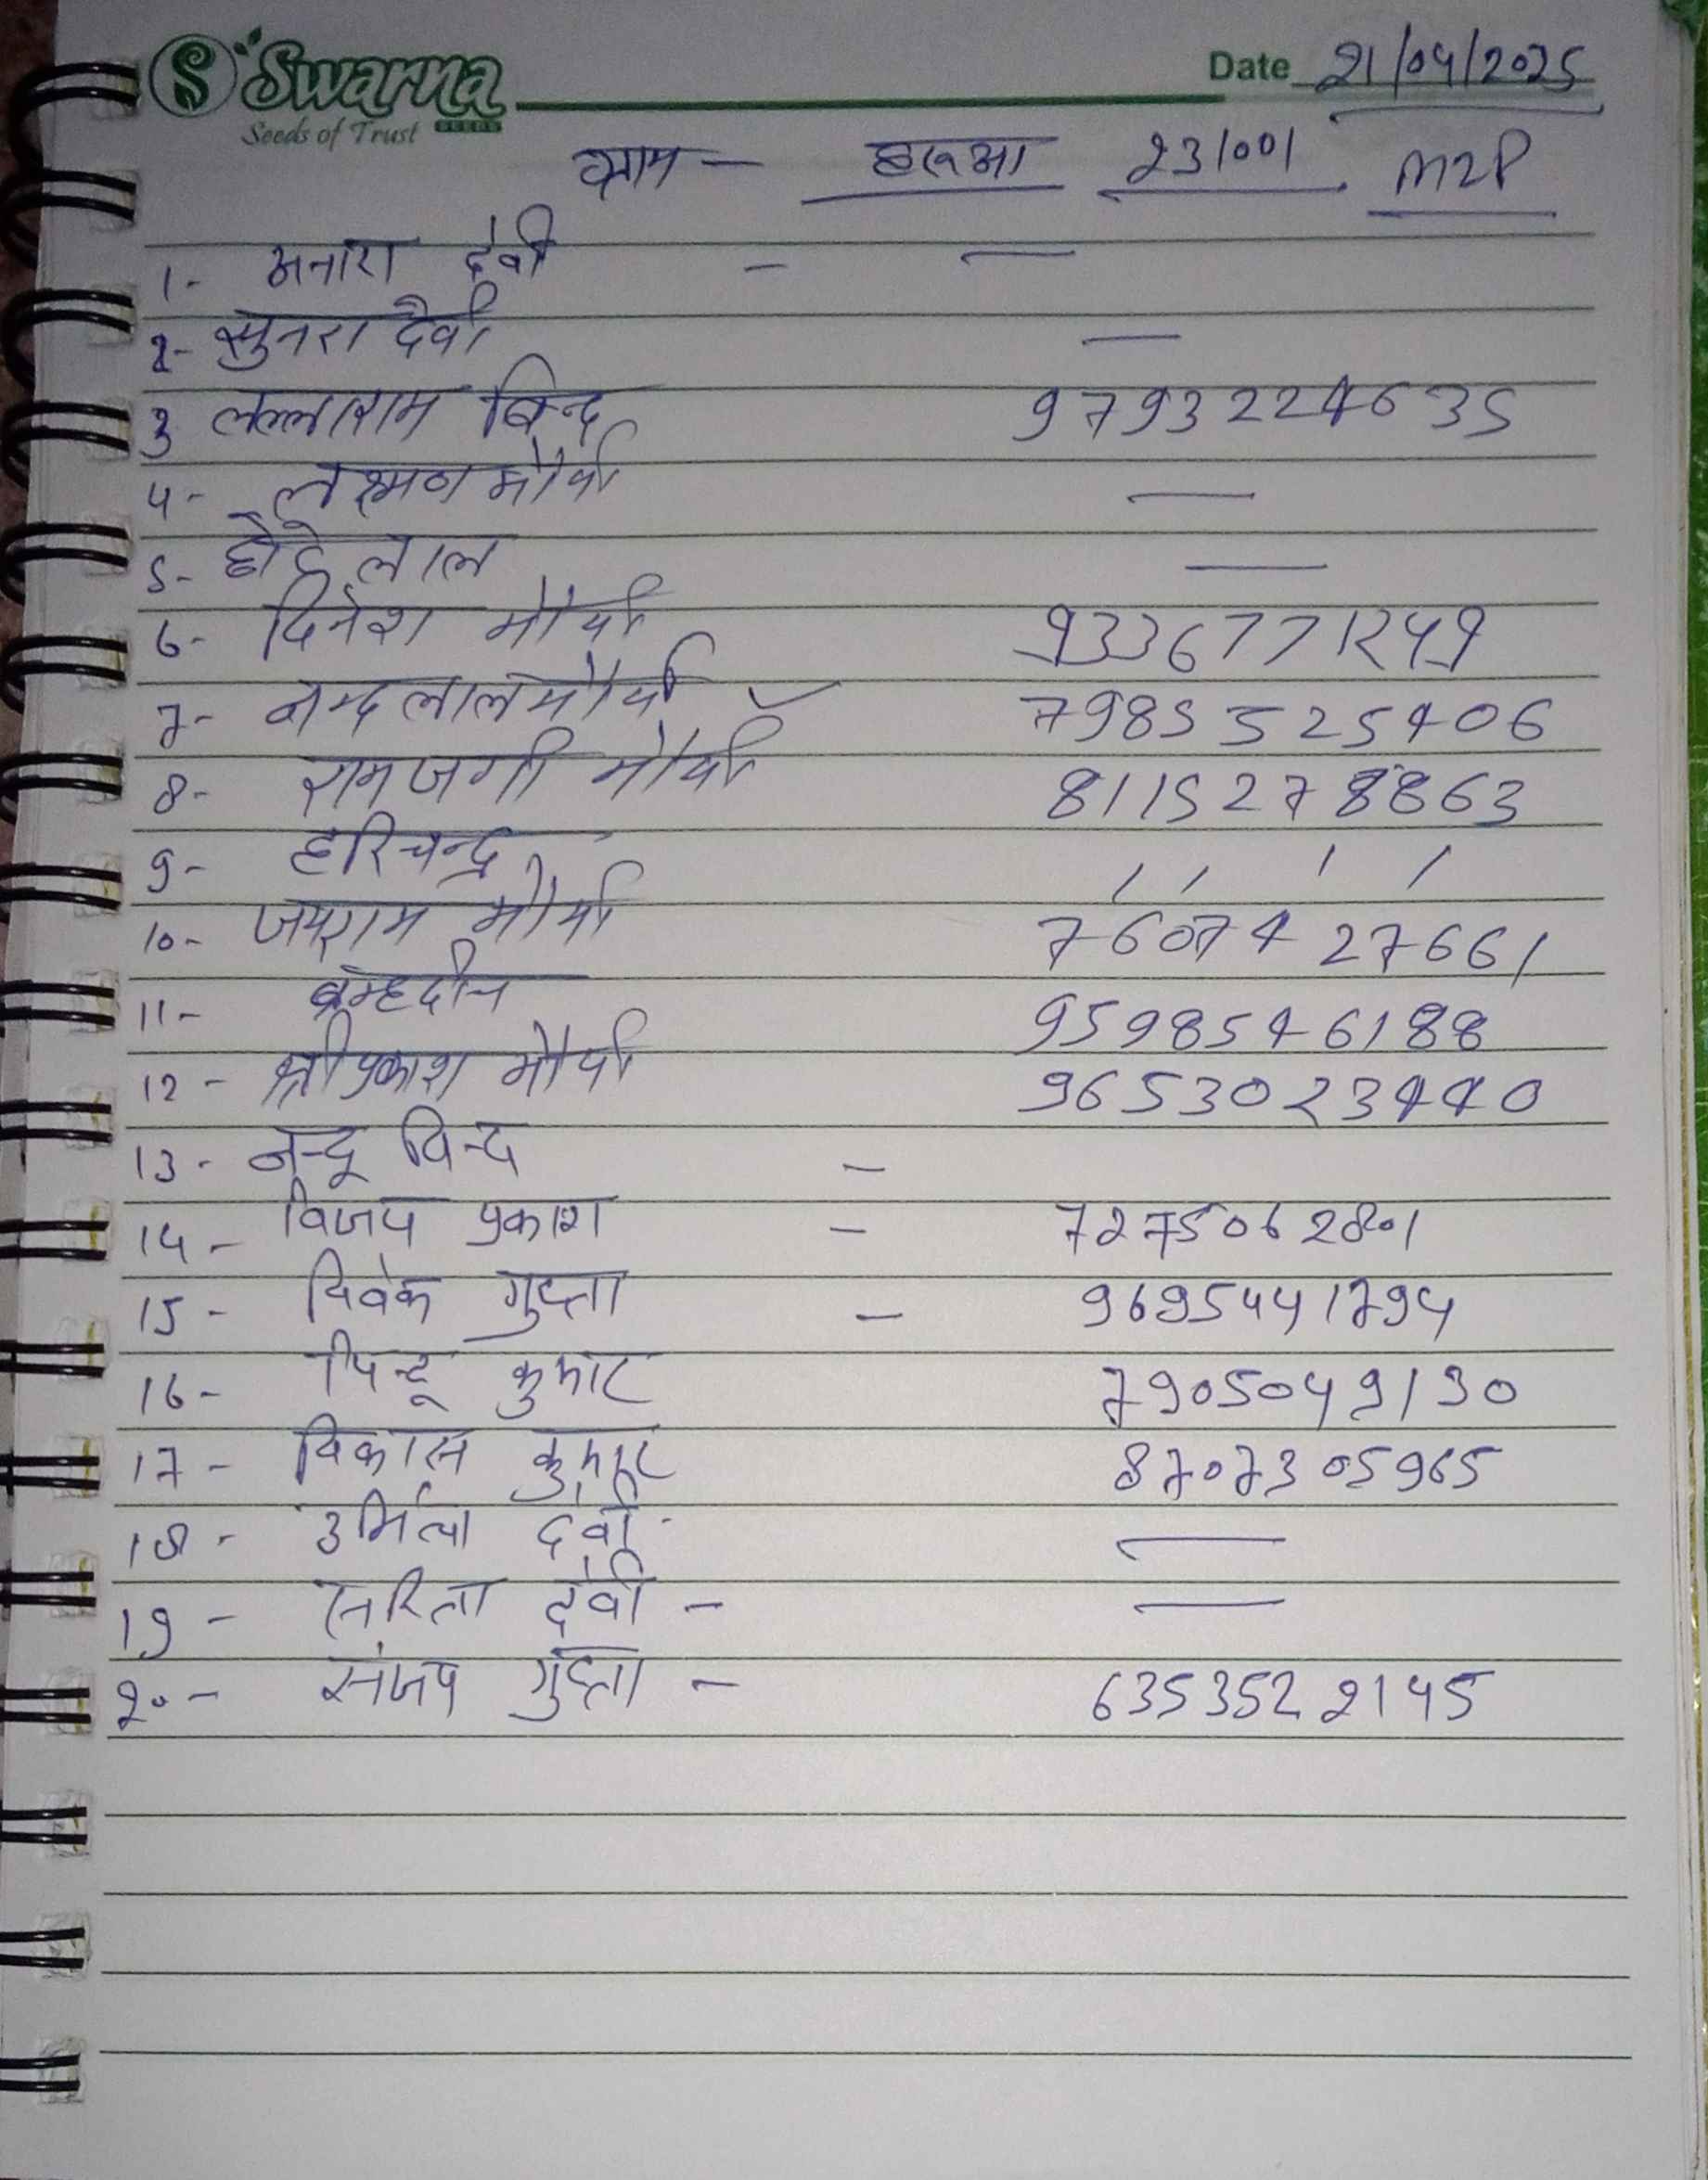 Swarna
SEEDS
Seeds of Trust
Date 21/04/2025
ग्राम - हरुआ 231001 MZP
1- अनारा देवी - —
2- सुनरा देवी —
3 लल्लाराम बिन्द 9793224635
4- लक्ष्मण मौर्या —
5- छोटे लाल —
6- दिनेश मौर्या 9336771249
7- नन्दलाल मौर्या 7985525406
8- रामजगी मौर्या 8115278863
9- हरिचन्द्र / / / /
10- जयराम मौर्या 7607427661
11- ब्रम्हदीन 9598546188
12- श्रीप्रकाश मौर्या 9653023440
13- नन्दू विन्द -
14- विजय प्रकाश - 7275062801
15- विवेक गुप्ता - 9695441794
16- पिन्टू कुमार 7905049130
17- विकास कुमार 8707305965
18- उर्मिला देवी- —
19- सरिता देवी - —
20- संजय गुप्ता - 6353522145